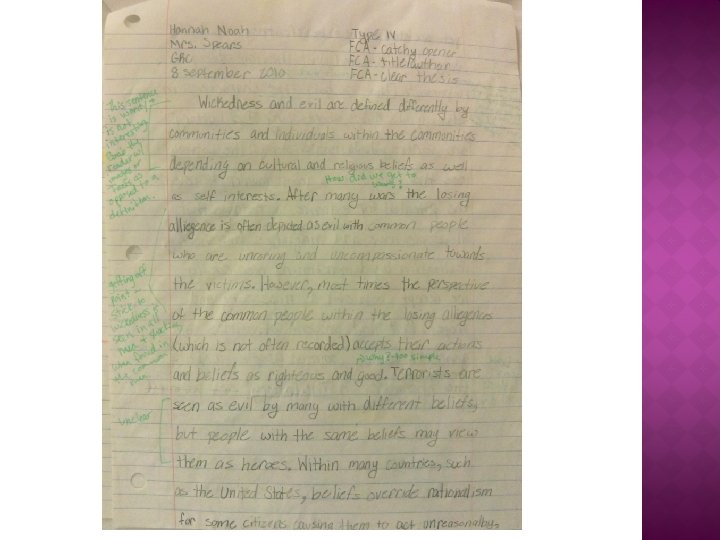 Hannah Noah
Type IV
Mrs. Spears
FCA - catchy opener
GRC
FCA - title/author
8 September 2010
FCA - clear thesis
This sentence is wordy + is not interesting
reader w/
opposed to a definition.
Wickedness and evil are defined differently by
communities and individuals within the communities
depending on cultural and religious beliefs as well
How did we get to wars?
as self interests. After many wars the losing
alliegence is often depicted as evil with common people
who are uncaring and uncompassionate towards
the victims. However, most times the perspective
getting off point - stick to wickedness
of the common people within the losing allegences
(which is not often recorded) accepts their actions
too simple
and beliefs as righteous and good. Terrorists are
unclear
seen as evil by many with different beliefs,
but people with the same beliefs may view
them as heroes. Within many countries, such
as the United States, beliefs override rationalism
for some citizens causing them to act unreasonably,